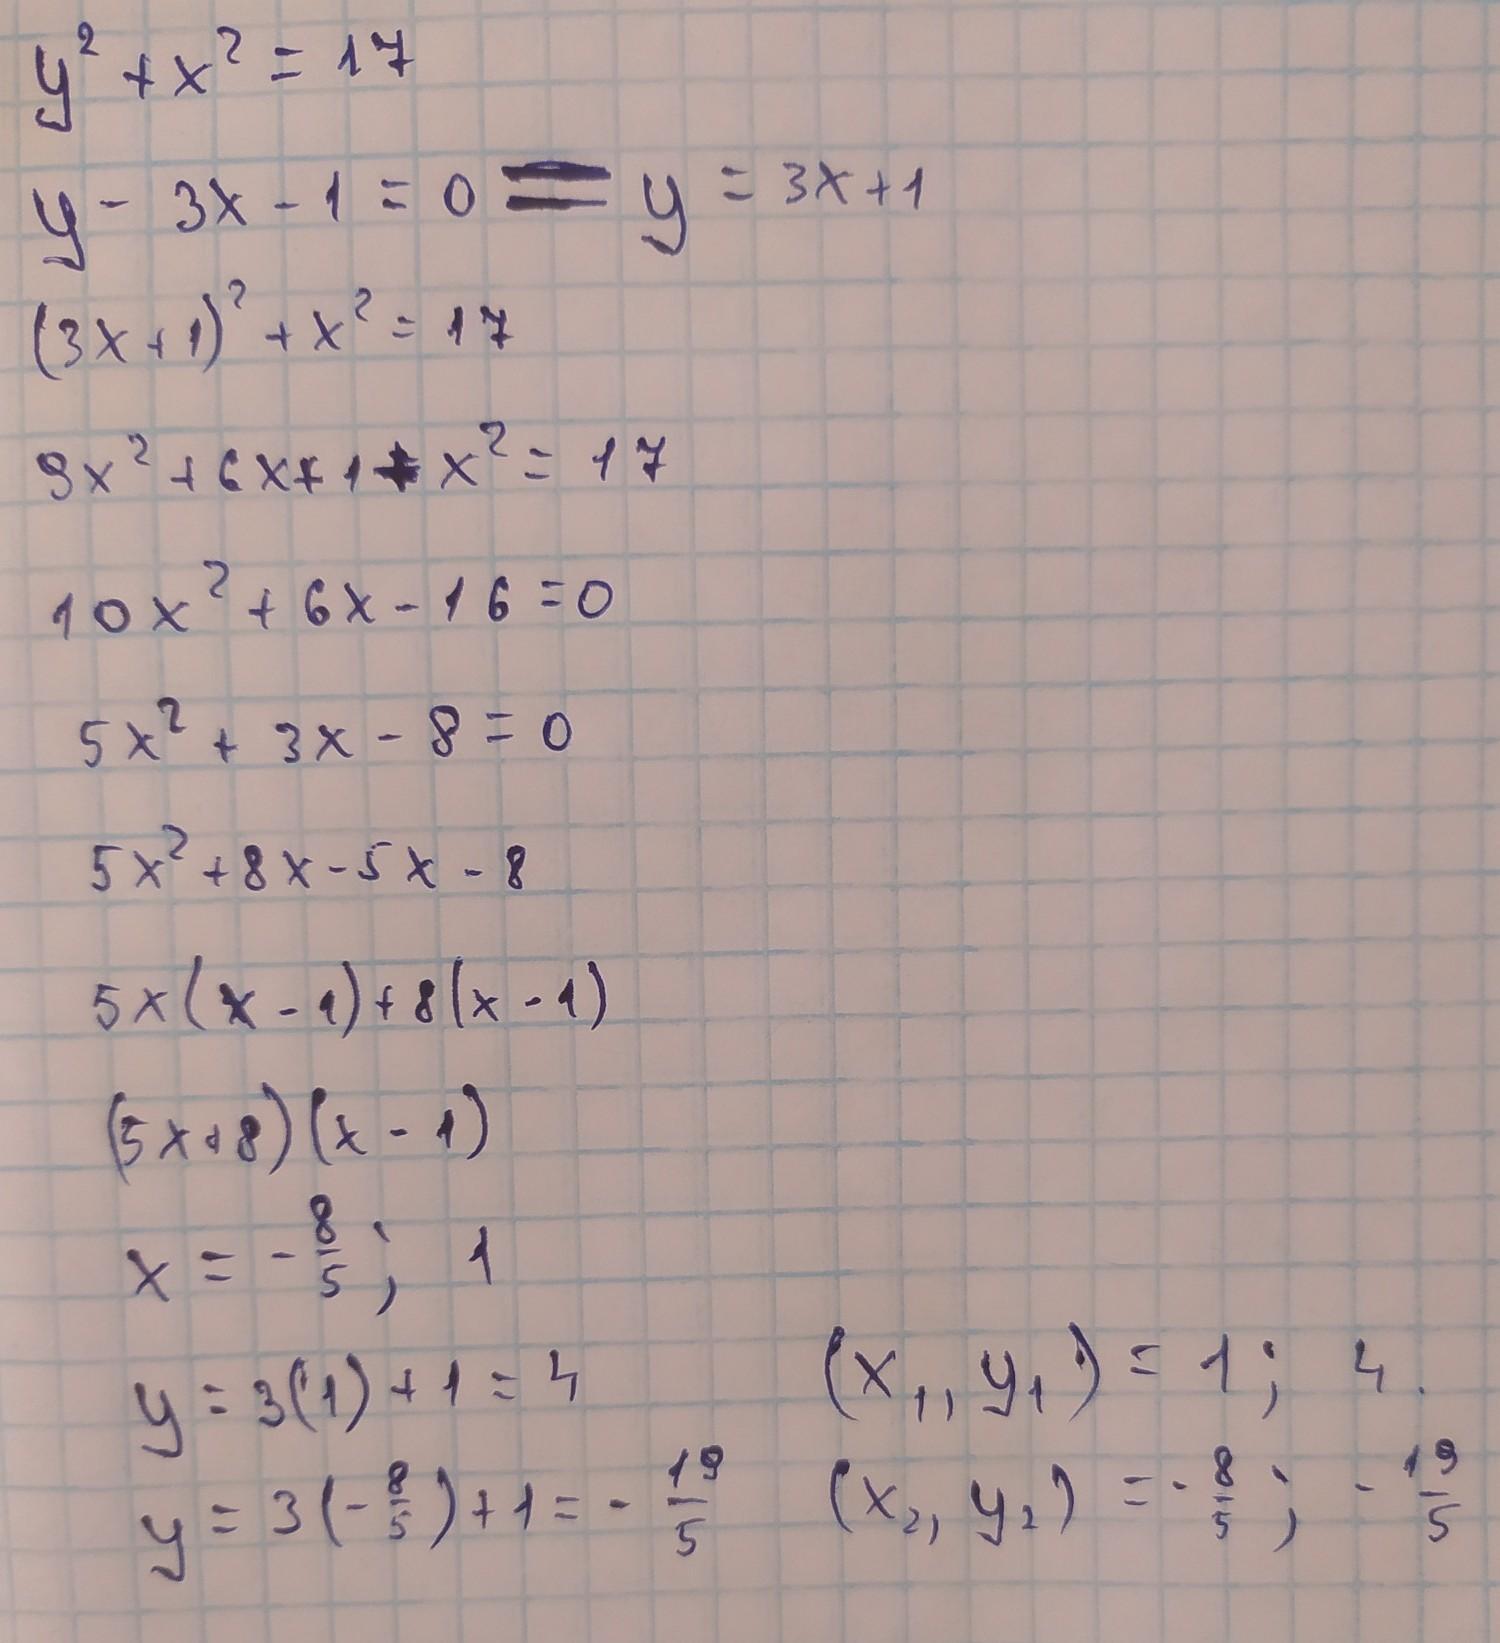 y² + x² = 17
y - 3x - 1 = 0 = y = 3x + 1
(3x + 1)² + x² = 17
9x² + 6x + 1 + x² = 17
10x² + 6x - 16 = 0
5x² + 3x - 8 = 0
5x² + 8x - 5x - 8
5x(x - 1) + 8(x - 1)
(5x + 8)(x - 1)
x = -8/5; 1
y = 3(1) + 1 = 4 (x₁, y₁) = 1; 4.
y = 3(-8/5) + 1 = -19/5 (x₂, y₂) = -8/5; -19/5